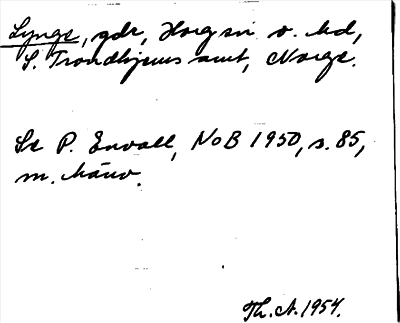 Lynge, gdr, Horg sn o. hd,
S. Trondhjems amt, Norge.
Se P. Envall, NoB 1950, s. 85,
m. hänv.
Th. A. 1954.